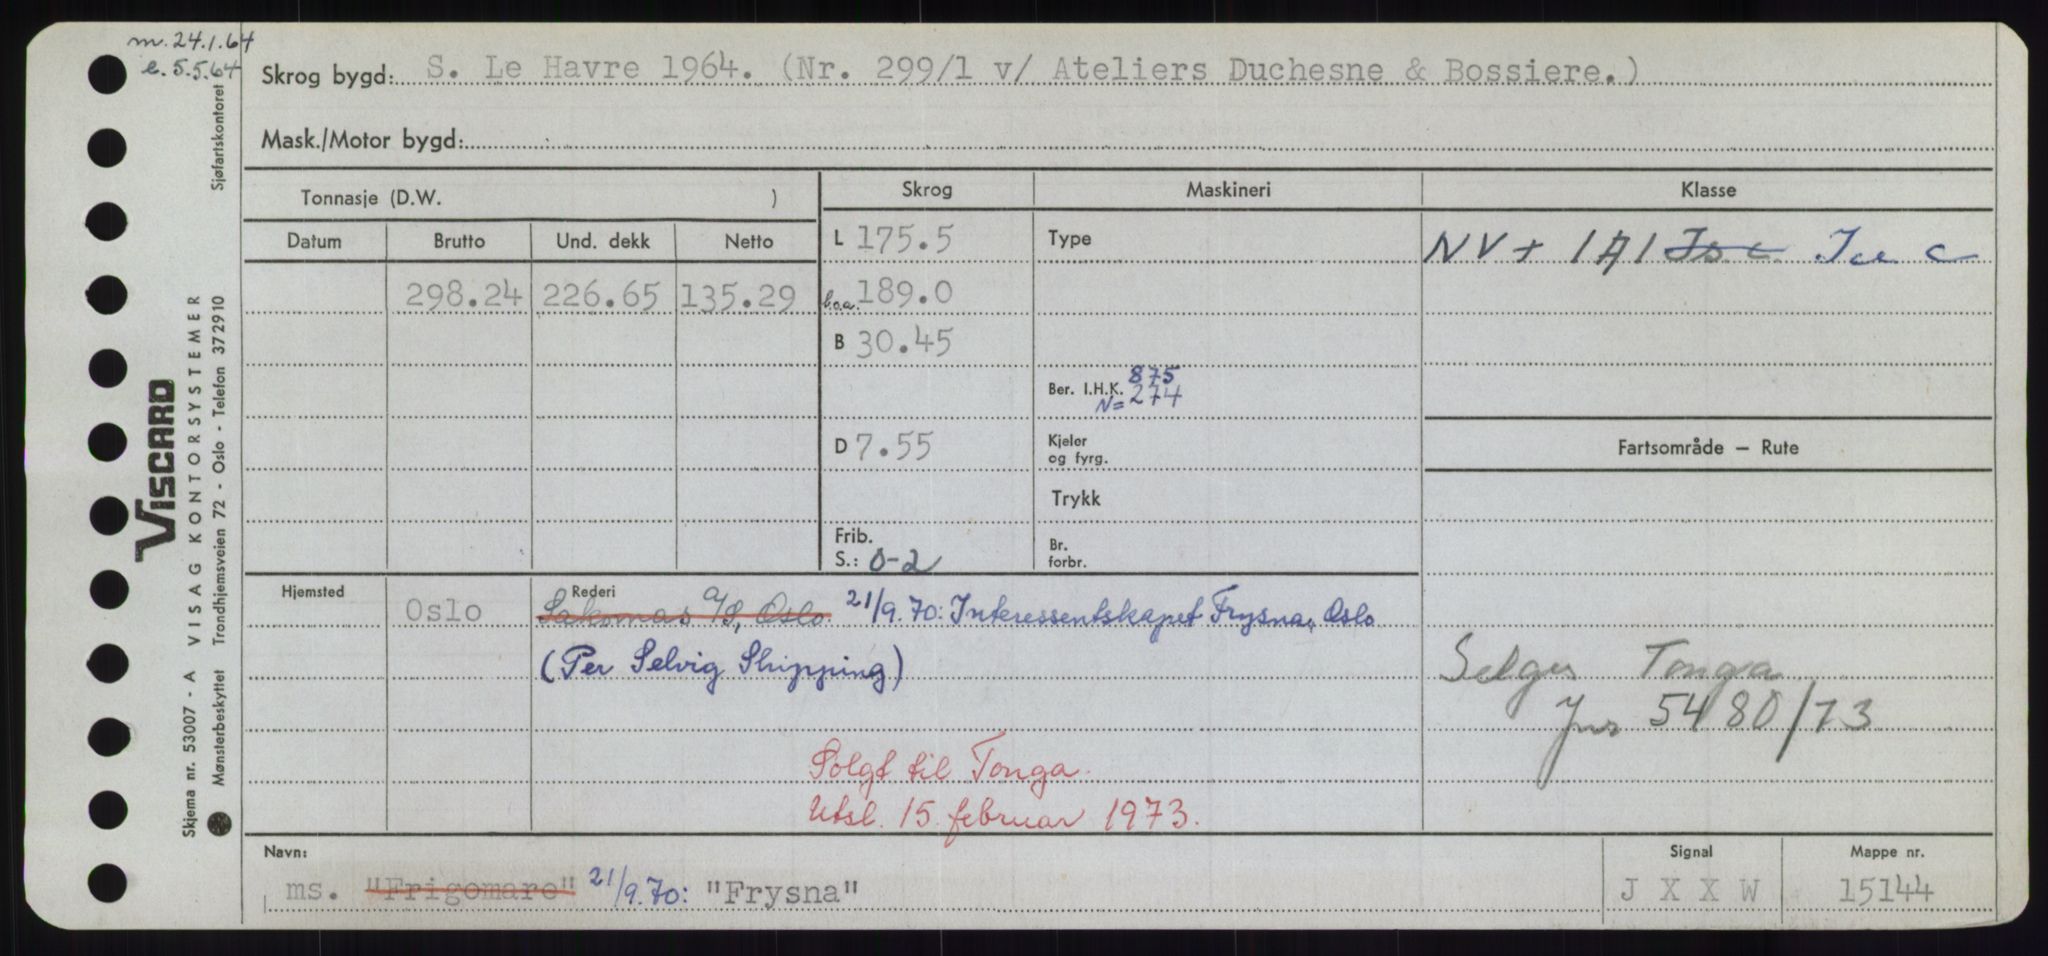 m. 24.1.64
e. 5.5.64
Skrog bygd: S. Le Havre 1964. (Nr. 299/1 v/ Ateliers Duchesne & Bossiere.)
Mask./Motor bygd:
Tonnasje (D.W. )
Skrog Maskineri Klasse
Datum Brutto Und. dekk Netto
L 175.5 Type NV + 1A1 Is c Ice C
298.24 226.65 135.29 b.a.a. 189.0
B 30.45
Ber. I.H.K. 875
N= 274
D 7.55 Kjeler og fyrg. Fartsområde — Rute
Trykk
Frib. S.: 0-2 Br. forbr.
Hjemsted Rederi
Oslo Sakomas A/S, Oslo. 21/9.70: Interessentskapet Frysna, Oslo
(Per Selvig Shipping)
Selges Tonga
Jnr 5480/73
Solgt til Tonga.
Utsl. 15. februar 1973.
Navn: Signal Mappe nr.
ms. "Frigomare" 21/9.70: "Frysna" J X X W 15144
VISCARD
Skjema nr. 53007 - A VISAG KONTORSYSTEMER
Mønsterbeskyttet Trondhjemsveien 72 - Oslo - Telefon 372910 Sjøfartskontoret